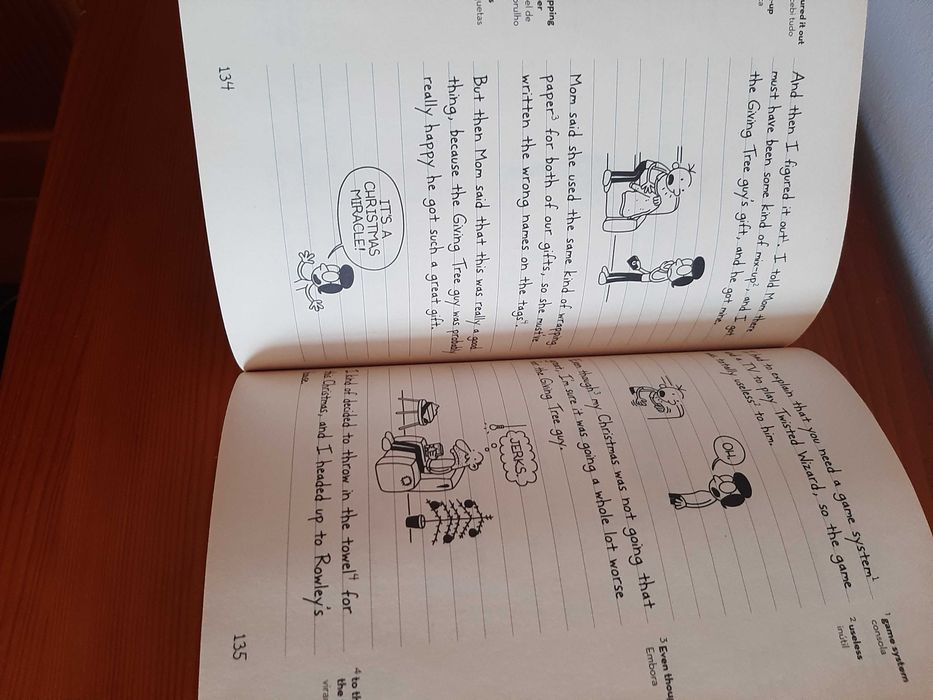 ured it out
cebi tudo
-up
And then I figured it out¹. I told Mom there
must have been some kind of mix-up², and I got
the Giving Tree guy's gift, and he got mine.
pping
er
el de
brulho
Mom said she used the same kind of wrapping
paper³ for both of our gifts, so she must've
written the wrong names on the tags⁴.
s
quetas
But then Mom said that this was really a good
thing, because the Giving Tree guy was probably
really happy he got such a great gift.
IT'S A
CHRISTMAS
MIRACLE!
134
to explain that you need a game system¹
a TV to play Twisted Wizard, so the game
totally useless² to him.
¹ game system
consola
² useless
inútil
OH.
though³ my Christmas was not going that
I'm sure it was going a whole lot worse
the Giving Tree guy.
³ Even thou
Embora
JERKS.
kind of decided to throw in the towel⁴ for
Christmas, and I headed up to Rowley's
⁴ to th
the
vira
135